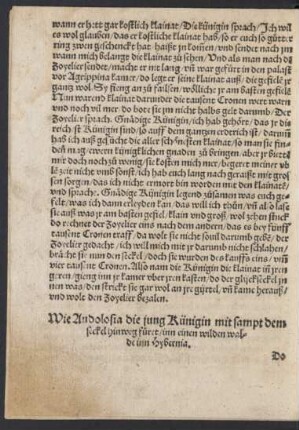 wann er hett gar kostlich klainat / Die künigin sprach / Ich wil
es wol glauben / das er kostliche klainat hab / so er euch so gütte
ring zwen geschenckt hat / haißt jn komen / vnd sendet nach jm
wann mich belangt die klainat zů sehen / Vnd als man nach dē
Joyelier sendet / macht er nit lang / vñ war gefürt in den palast
vor Agrippina kamer / do legt er seine klainat auß / die gefielē jr
gang wol. Sy fieng an zů failsen / wölliche jr am basten gefielē
Nun warend klainat darunder die tausent Cronen wert warn
vnd noch vil mer do bote sie jm nicht halbs gelt darumb / Der
Joyelier sprach. Gnädige Künigin / ich hab gehört / das jr die
reich ist Künigin sind / so auff dem gangen erderich ist / darumb
hab ich auß gsücht die aller schönisten klainat / so man sie fin-
den mag / ewern künigklichen gnaden zů bringen / aber jr bietet
mir doch noch zů wenig / sie kosten mich mer / begert ewer
zeit nicht vmb sonst / ich hab euch lang nach geraißt mit gros
sen sorgen / das ich nicht ermort bin worden mit den klainatē /
vnd sprach / Gnädige Künigin legend züsamen was euch ge-
felt / was ich dann erleyden kan / das will ich thůn / vñ also lase
sie auß was jr am basten gefiel / klain vnd groß / wol zehen stuck
do rechnet der Joyelier eins nach dem andern / das es bey fünff
tausent Cronen traff / da wolt sie nicht souil darumb geben / der
Joyelier gedachte / ich will mich mit jr darumb nicht schlahen /
brächte sie nun den seckel / doch sie wurden des kauffs eins / vmb
vier tausent Cronen. Also nam die Künigin die klainat jn jren
geren gieng in jr kamer vber jren kasten / do der glückseckel jn-
nen was / den strickt sie gar wol an jr gürtel / vñ kame herauß /
vnd wolt den Joyelier bezalen.
Wie Andolosia die jung Künigin mit sampt dem
seckel hinweg füret / inn einen wilden wal-
de inn Hybernia.
Do